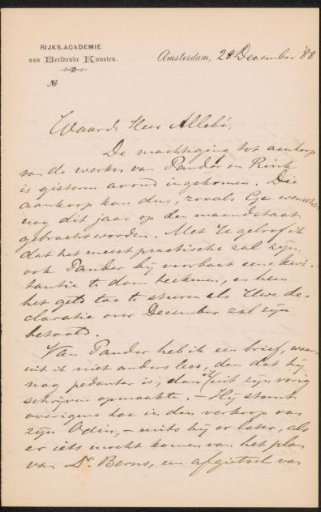 RIJKS-ACADEMIE
van Beeldende Kunsten.
Amsterdam, 24 December '88
№
Waarde Heer Allebé,
De machtiging tot aankoop
van de werken van Pander en Rink
is gisteren avond ingekomen. Die
aankoop kan dus, zooals Ge wenschte,
nog dit jaar op den maandstaat
gebracht worden. Met U geloof ik
dat het meest practische zal zijn
ook Pander bij voorbaat een kwi-
tantie te doen teekenen, en hem
het geld toe te sturen als Uwe de-
claratie over December zal zijn
betaald.
Van Pander heb ik een brief, waar-
uit ik niet anders lees, dan dat hij
nog pedanter is, dan uit zijn vorig
schrijven opmaakte. — Hij stemt
overigens toe in den verkoop van
zijn Odin, — mits hij er later, als
er iets mocht komen van het plan
van Dr. Berns, een afgietsel van